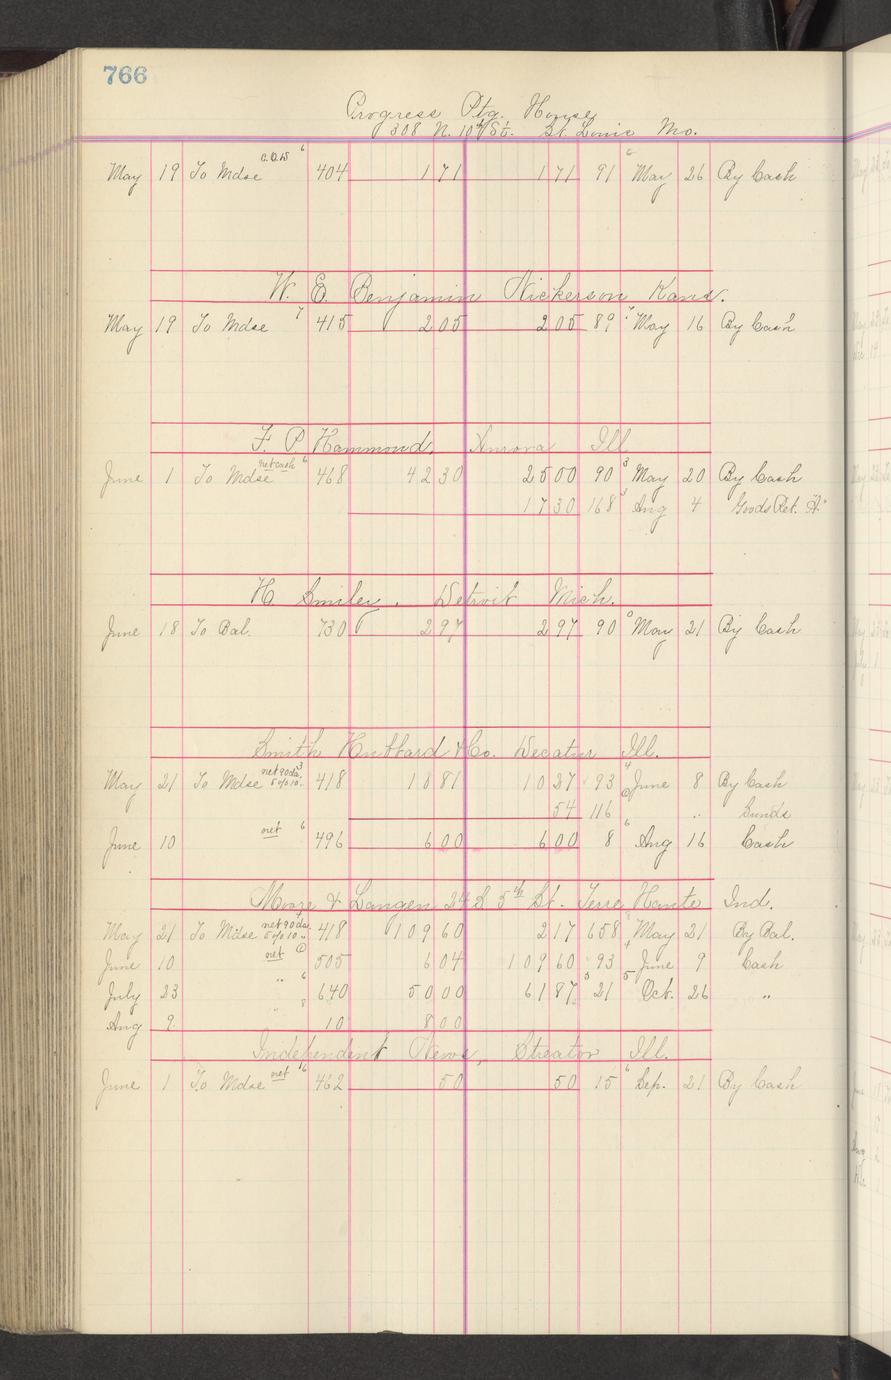 766
Progress Ptg. House
308 N. 10th St. St. Louis Mo.
May 19 To Mdse C.O.D. 6 404 171 171 91 6 May 26 By Cash
W. E. Benjamin Nickerson Kans.
May 19 To Mdse 7 415 205 205 89 7 May 16 By Cash
F. P. Hammond. Aurora Ill
June 1 To Mdse net cash 6 468 4230 2500 90 3 May 20 By Cash
1730 168 3 Aug 4 Goods Ret. "A"
H. Smiley. Detroit Mich.
June 18 To Bal. 730 297 297 90 0 May 21 By Cash
Smith Hubbard & Co. Decatur Ill.
May 21 To Mdse net 90 da. 5 % 10. 3 418 1081 1027 93 4 June 8 By Cash
54 116 6 " Sunds
June 10 net 6 496 600 600 8 6 Aug 16 Cash
Moore & Langen 24 S 5th St. Terre Haute Ind.
May 21 To Mdse net 90 da. 5 % 10 " 418 10960 217 658 May 21 By Bal.
June 10 net 505 604 10960 93 4 June 9 Cash
July 23 " 6 640 5000 6187 21 5 Oct. 26 "
Aug 9 " 8 10 800
Independent News, Streator Ill.
June 1 To Mdse net 6 462 50 50 15 6 Sep. 21 By Cash